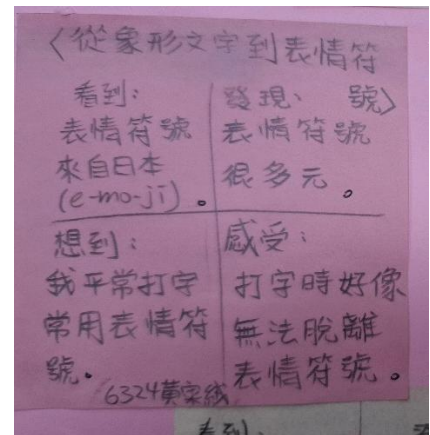 〈從象形文字到表情符號〉
看到：
表情符號
來自日本
(e-mo-ji)。
發現、
表情符號
很多元。
想到：
我平常打字
常用表情符
號。
感受：
打字時好像
無法脫離
表情符號。
6324黃
看到：